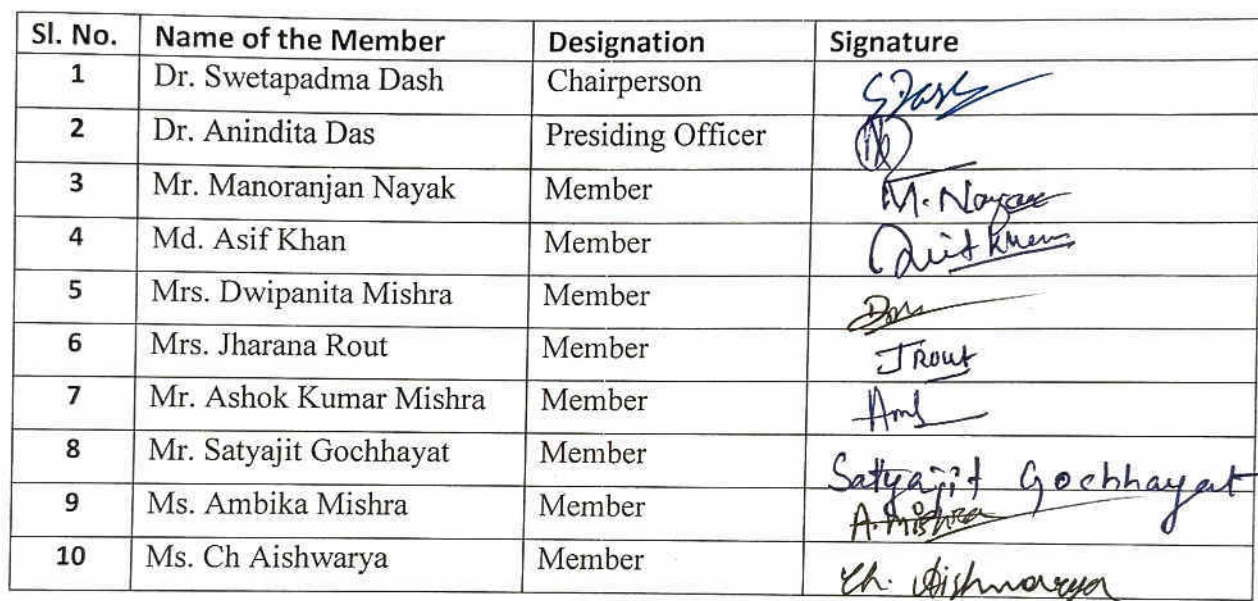 Sl. No. Name of the Member Designation Signature
1 Dr. Swetapadma Dash Chairperson SDash
2 Dr. Anindita Das Presiding Officer
3 Mr. Manoranjan Nayak Member M. Nayak
4 Md. Asif Khan Member Asif Khan
5 Mrs. Dwipanita Mishra Member
6 Mrs. Jharana Rout Member JRout
7 Mr. Ashok Kumar Mishra Member
8 Mr. Satyajit Gochhayat Member Satyajit Gochhayat
9 Ms. Ambika Mishra Member A. Mishra
10 Ms. Ch Aishwarya Member Ch. Aishwarya